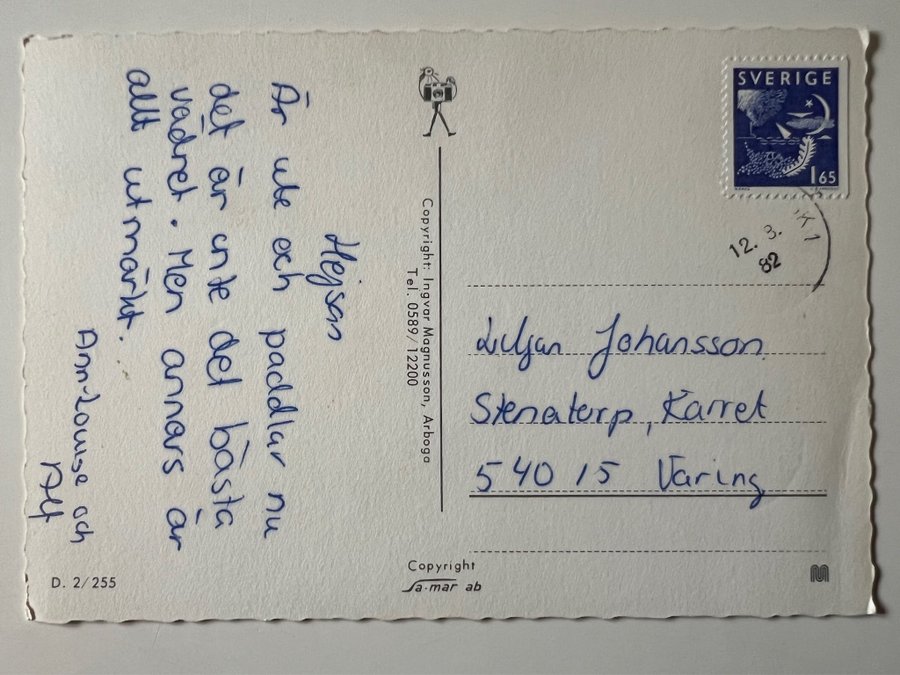 Hejsan
Är ute och paddlar nu
det är inte det bästa
vädret. Men annars är
allt utmärkt.
Ann-Louise och
Alf
D. 2/255
Copyright: Ingvar Magnusson, Arboga
Tel. 0589/12200
Copyright
Sa-mar ab
SVERIGE
1 65
12. 3.
82
Liljan Johansson
Stenatorp, Karret
540 15 Väring